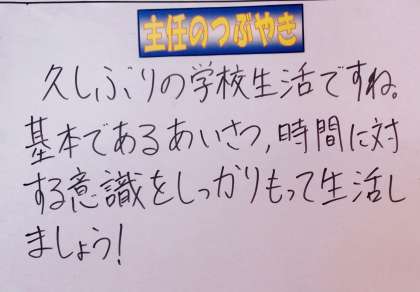 主任のつぶやき
久しぶりの学校生活ですね。
基本であるあいさつ,時間に対
する意識をしっかりもって生活し
ましょう!